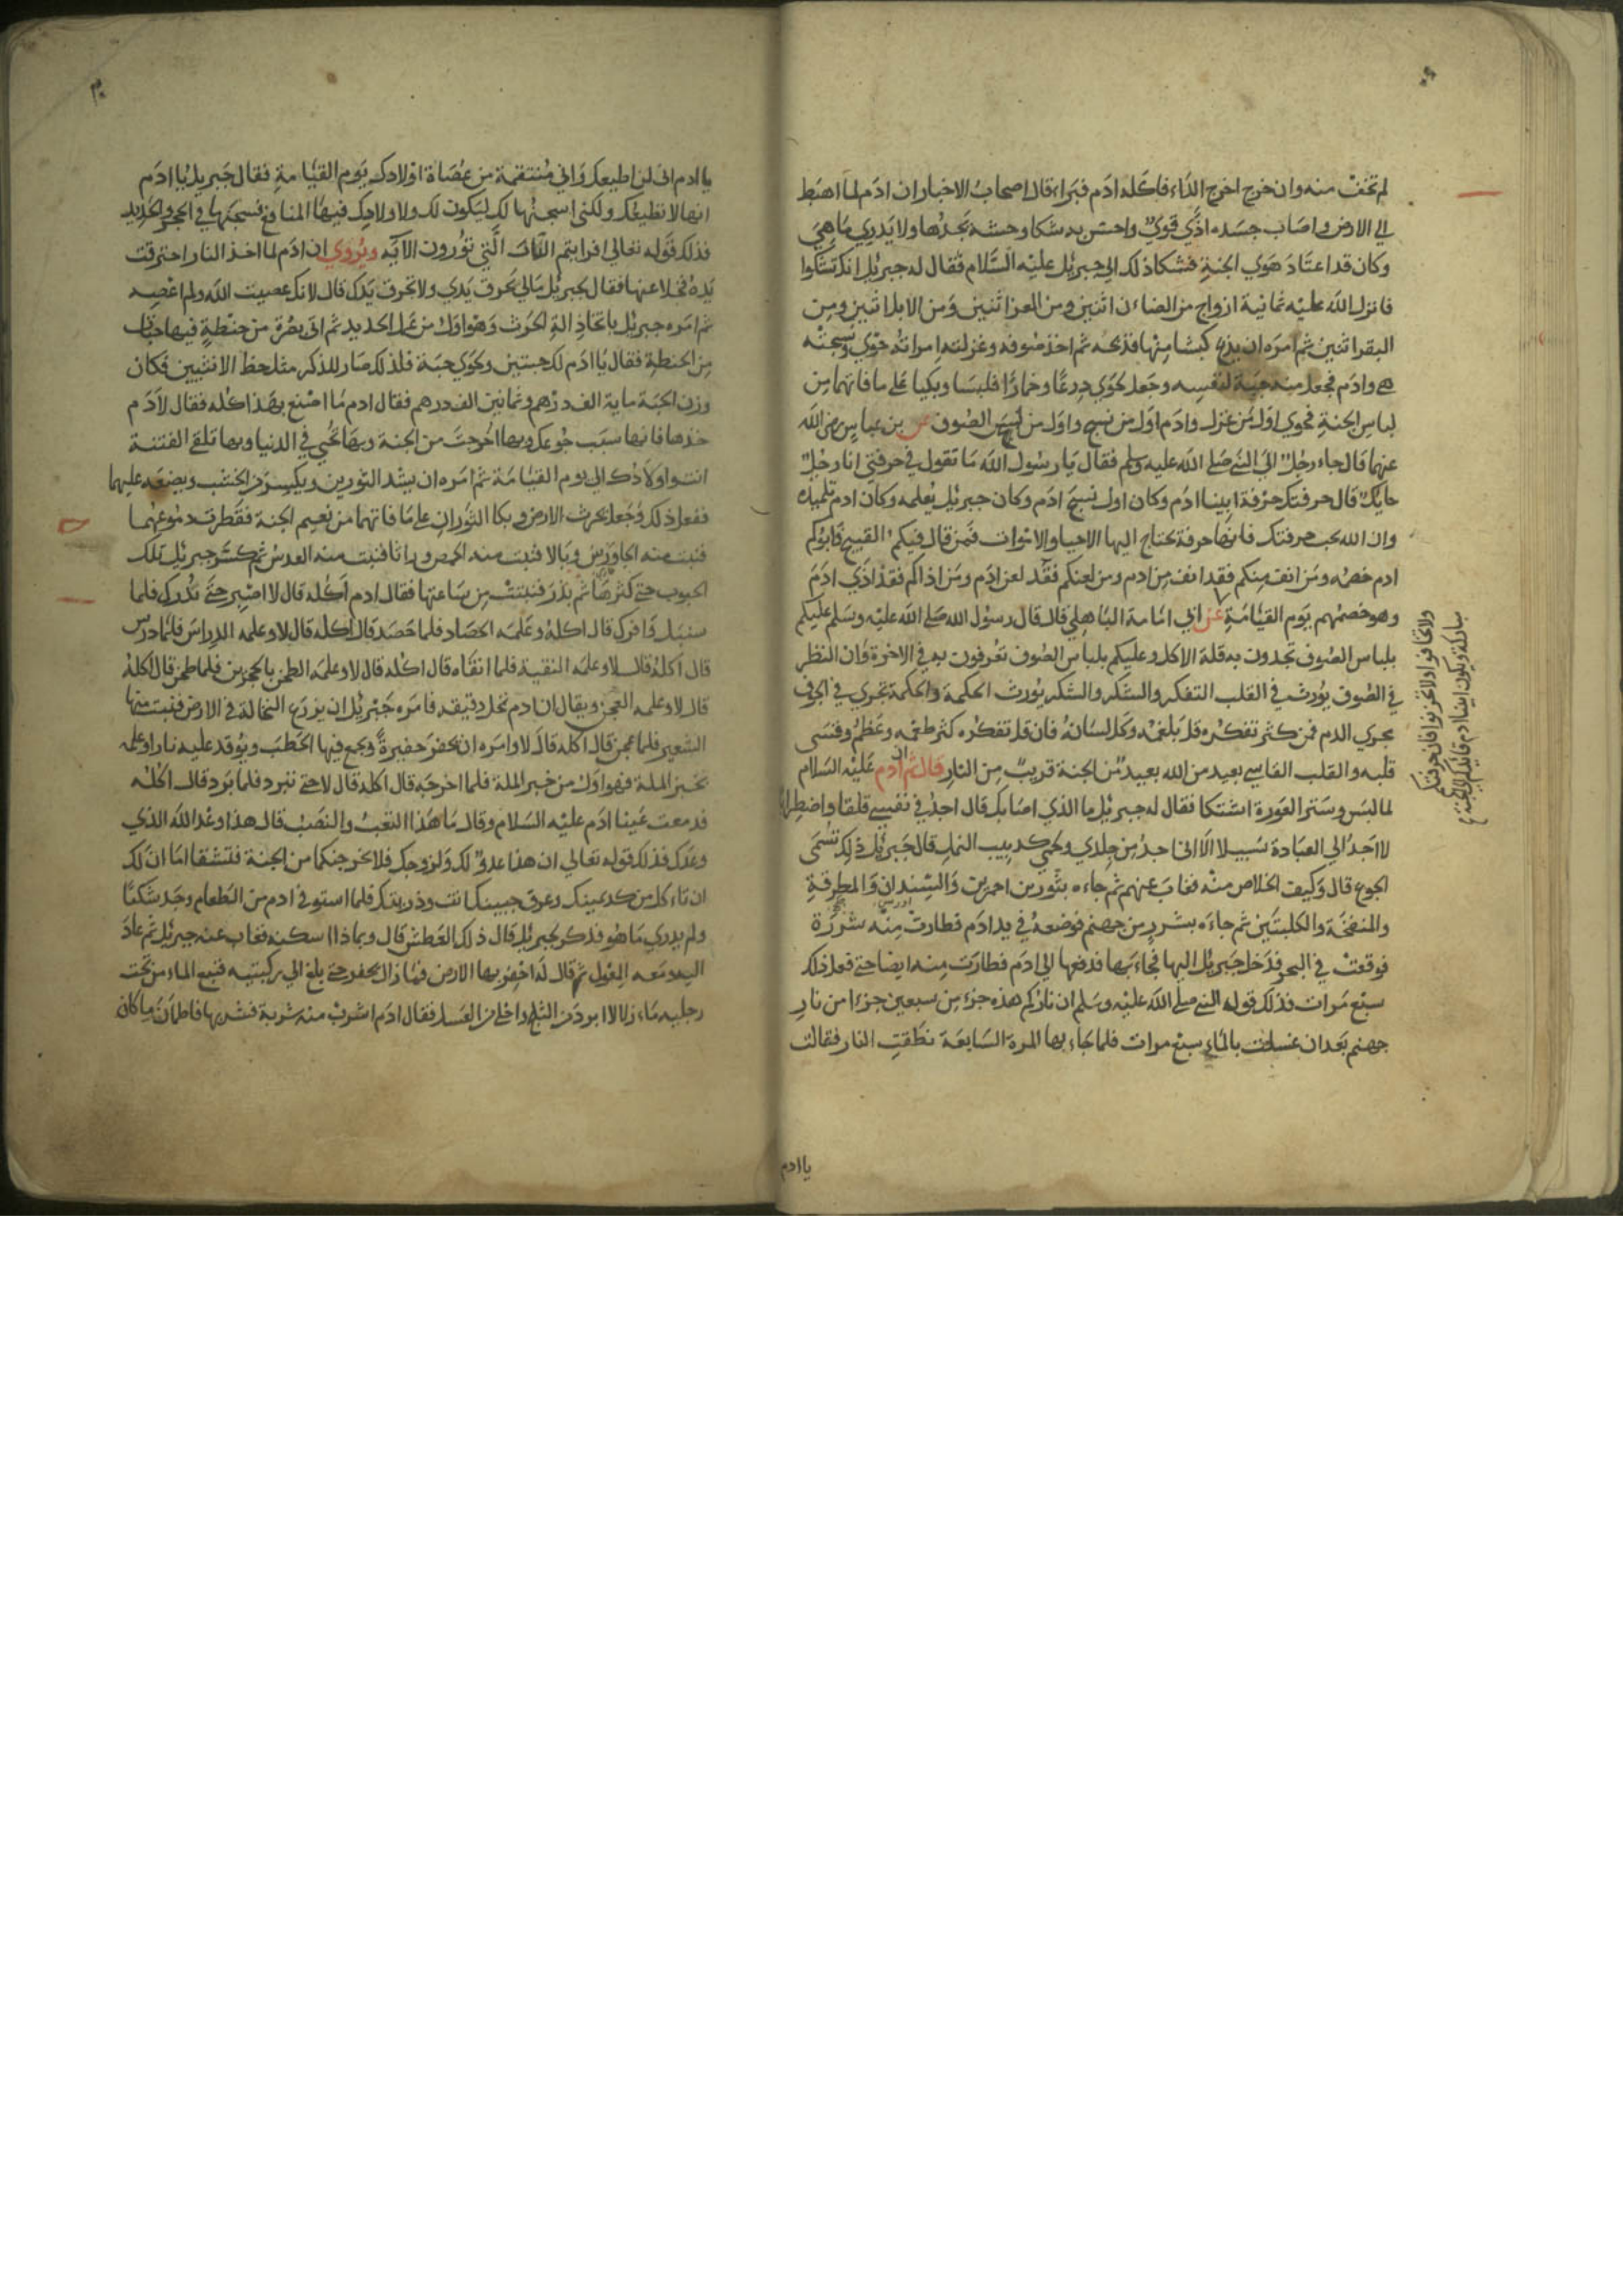 لم تخف منه وان خرج اخرج الداء فاكله ادم فبراء قال اصحاب الاخبار ان ادم لما اهبط
الي الارض واصاب جسده اذي قوي واحس به شكا وحشه يجدها ولا يدري ما هي
وكان قد اعتاد هوي الجنة فشكا ذلك الي جبريل عليه السلام فقال له جبريل انك تشكوا
فانزل الله عليه ثمانية ازواج من الضاءن اثنين ومن المعز اثنين ومن الابل اثنين ومن
البقر اثنين ثم امره ان يذبح كبشا منها فذبحه ثم اخذ صوفه وغزلته امراته حوي ونسجته
هي وادم فجعل منه جبة لنفسه وجعل لحوي درعا وخمارا فلبسا وبكيا علي ما فاتهما من
لباس الجنة فحوي اول من غزل وادم اول من نسج واول من لبس الصوف عن بن عباس رضي الله
عنهما قال جاء رجل الي النبي صلي الله عليه وسلم فقال يا رسول الله ما تقول في حرفتي انا رجل
حايك قال حرفتك حرفة ابينا ادم وكان اول من نسج ادم وكان جبريل يعلمه وكان ادم تلميذه
وان الله يحب حرفتك فانها حرفة يحتاج اليها الاحيا والاموات فمن قال فيكم القبيح فابوكم
ادم خصمه ومن انف منكم فقد انف من ادم ومن لعنكم فقد لعن ادم ومن اذاكم فقد اذي ادم
وهو خصمهم يوم القيامة عن ابي امامة الباهلي قال قال رسول الله صلي الله عليه وسلم عليكم
بلباس الصوف تجدون به قلة الاكل وعليكم بلباس الصوف تعرفون به في الاخرة وان النظر
في الصوف يورث في القلب التفكر والشكر والشكر يورث الحكمة والحكمة تجري في الجوف
مجري الدم فمن كثر تفكره قل بلغمه وكل لسانه فان قل تفكره كثر طعمه وعظم وقسي
قلبه والقلب القاسي بعيد من الله بعيد من الجنة قريب من النار قال ثم ان ادم عليه السلام
لما لبس وستر العورة اشتكا فقال له جبريل ما الذي اصابك قال اجد في نفسي قلقا واضطرابا
لا اجد الي العبادة سبيلا الا اني اجد بين جلدي ولحمي كدبيب النمل قال جبريل ذلك تسمي
الجوع قال وكيف الخلاص منه فغاب عنهم ثم جاءه بثورين احمرين والسندان والمطرقة
والمنفخة والكلبتين ثم جاءه بشرر من جهنم فوضعه في يد ادم فطارت منه شررة
فوقعت في البحر فدخل جبريل اليها فجاء بها فدفعها الي ادم فطارت منه ايضا حتي فعل ذلك
سبع مرات فذلك قوله النبي صلي الله عليه وسلم ان ناركم هذه جزء من سبعين جزءا من نار
جهنم بعد ان غسلت بالماء سبع مرات فلما جاء بها المرة السابعة نطقت النار فقالت
يا ادم
ولا تخافوا ولا تحزنوا فان حرفتكم
مباركة ويكون ابينا ادم قائدكم الي الجنة
يا ادم اني لن اطيعك واني منتقمة من عصاة اولادك يوم القيامة فقال جبريل يا ادم
انها لا تطيعك ولكني اسجنها لك ليكون لك ولاولادك فيها المنافع فسجنها في الحجر والحديد
فذلك قوله تعالي افرايتم النار التي تورون الآيه ويروي ان ادم لما اخذ النار احترقت
يده فخلا عنها فقال لجبريل مالي تحرق يدي ولا تحرق يدك قال لانك عصيت الله ولم اعصيه
ثم امره جبريل باتخاذ الة الحرث وهو اول من عمل الحديد ثم اتي بصرة من حنطة فيها حبتان
من الحنطة فقال يا ادم لك حبتين ولحوي حبة فلذلك صار للذكر مثل حظ الانثيين فكان
وزن الحبة ماية الف درهم وثمانين الف درهم فقال ادم ما اصنع بهذا كله فقال لادم
خذها فانها سبب جوعك وبها اخرجت من الجنة وبها تحيي في الدنيا وبها تلقي الفتنة
انت واولادك الي يوم القيامة ثم امره ان يشد الثورين ويكسر من الخشب ويضعه عليهما
ففعل ذلك وجعل يحرث الارض وبكا الثوران علي ما فاتهما من نعيم الجنة فقطرت دموعهما
فنبت منه الجاورس وبالا فنبت منه الحمص وراثا فنبت منه العدس ثم كسر جبريل تلك
الحبوب حتي كثرها ثم بذر فنبتت من ساعتها فقال ادم اكله قال لا اصبر حتي تدرك فلما
سنبل وافرك قال اكله وعلمه الحصاد فلما حصد قال اكله قال لا وعلمه الدراس فلما درس
قال اكله قال لا وعلمه التنقية فلما انقاه قال اكله قال لا وعلمه الطحن بالحجرين فلما طحن قال اكله
قال لا وعلمه العجن ويقال ان ادم نخل دقيقه فامره جبريل ان يزرع النخالة في الارض فنبت منها
الشعير فلما عجن قال اكله قال لا وامره ان يحفر حفيرة ويجمع فيها الحطب ويوقد عليه نارا وعلمه
بخبز الملة فهو اول من خبز الملة فلما اخرجه قال اكله قال لا حتي تبرد فلما برد قال اكله
فدمعت عينا ادم عليه السلام وقال ما هذا التعب والنصب قال هذا وعد الله الذي
وعدك فذلك قوله تعالي ان هذا عدو لك ولزوجك فلا يخرجنكما من الجنة فتشقا اما ان لك
ان تاءكل من كد يمينك وعرق جبينك انت وذريتك فلما استوفي ادم من الطعام وجد شكتا
ولم يدري ما هو فذكر لجبريل قال ذلك العطش قال وبماذا اسكنه فغاب عنه جبريل ثم عاد
اليه ومعه المغول ثم قال له احفر بها الارض فما زال يحفر حتي بلغ الي ركبتيه فنبع الماء من تحت
رجليه ماء زلالا ابرد من الثلج واحلي من العسل فقال ادم اشرب منه شربة فشربها فاطمان ما كان